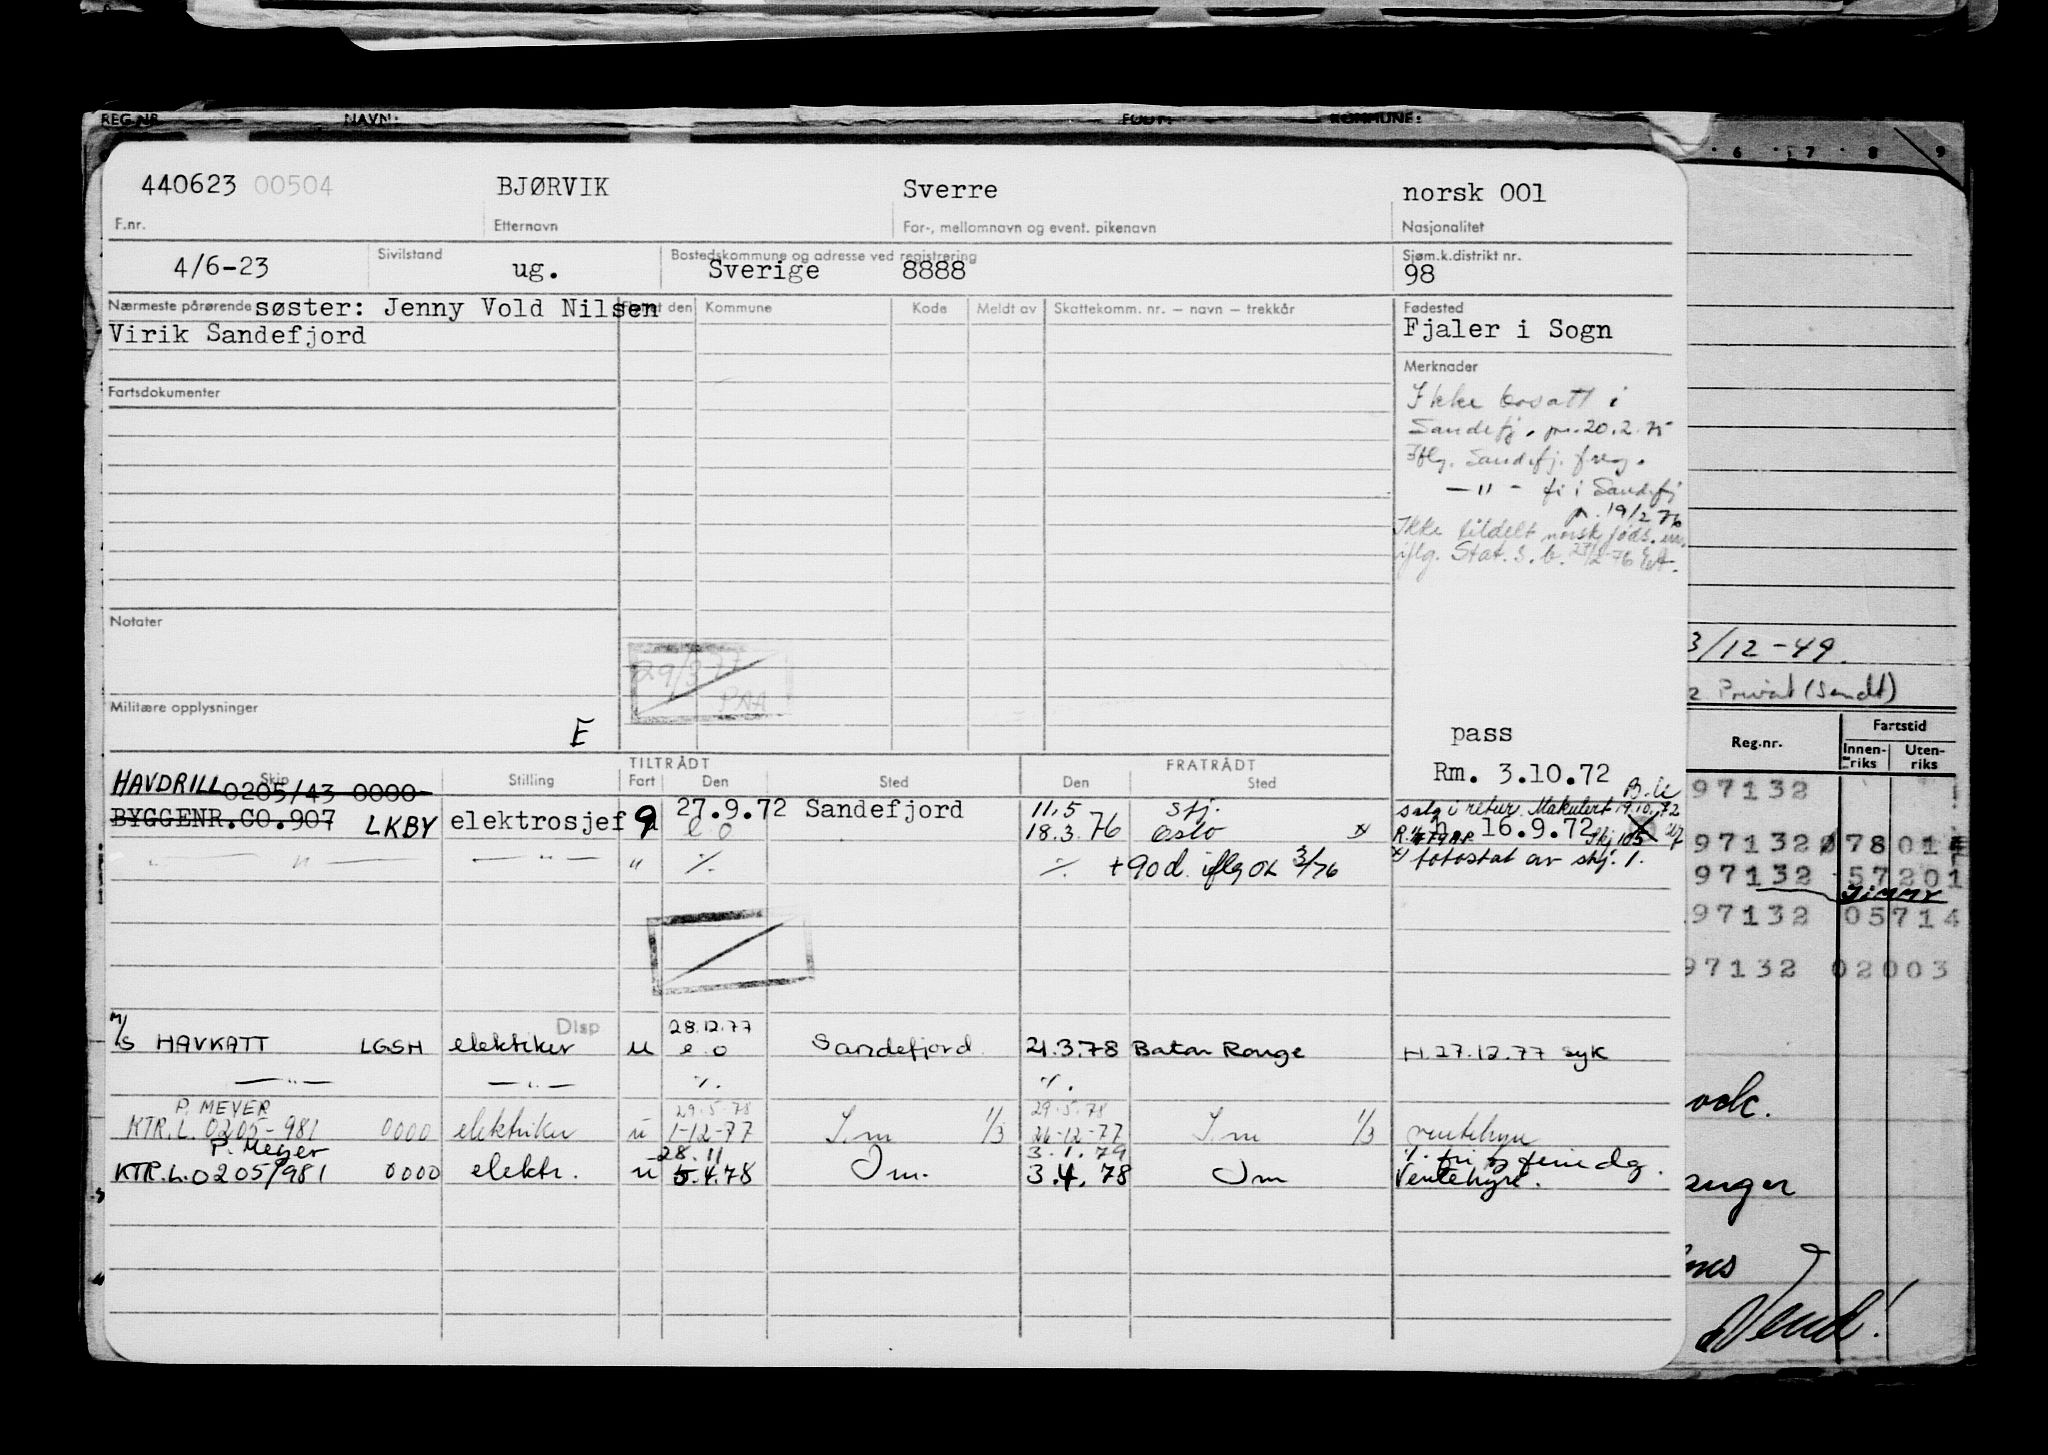 REG.NR. NAVN: FØDT: KOMMUNE:
6 7 8 9
440623 00504 BJØRVIK Sverre norsk 001
F.nr. Etternavn For-, mellomnavn og event. pikenavn Nasjonalitet
4/6-23 Sivilstand ug. Bostedskommune og adresse ved registrering Sverige 8888 Sjøm.k.distrikt nr. 98
Nærmeste pårørende søster: Jenny Vold Nilsen
Virik Sandefjord
den Kommune Kode Meldt av Skattekomm. nr. – navn – trekkår
Fødested
Fjaler i Sogn
Merknader
Ikke bosatt i
Sandefj. pr. 20.2.75
Iflg. Sandefj. freg.
— " — fr i Sandefj
pr. 19/2 76
Ikke tildelt norsk føds. nr.
iflg. Stat. S. b. 23/2-76
Fartsdokumenter
Notater
29/3 77
PAA
Militære opplysninger
E
pass
Rm. 3.10.72
TILTRÅDT FRATRÅDT
Skip Stilling Fart Den Sted Den Sted
HAVDRILL 0205/43 0000
BYGGENR.CO.907 LKBY elektrosjef 9 27.9.72 e.o Sandefjord 11.5 Stj.
18.3.76 Oslo
salg i retur. Makulert 19.10.72
h 16.9.72
— " — — " — " ·/. ·/. +90d. iflg OL 3/76 fotostat av shj. 1.
M/S HAVKATT LGSH elektriker Disp u 28.12.77 e.o Sandefjord 21.3.78 Baton Rouge H.27.12.77 syk
— " — — " — ·/. ·/.
P. MEYER 29.5.78 29.5.78
KTR.L. 0205-981 0000 elektriker u 1-12-77 I.m 1/3 26-12-77 I.m 1/3 ventehyre
P. Meyer 28.11 3.1.79
KTR.L.0205/981 0000 elektr. u 5.4.78 Im. 3.4.78 Im Ventehyre.
3/12-49.
Privat (Sandt)
Reg.nr. Fartstid
Innen-riks Uten-riks
97132
97132 07801
97132 57201
JIMMY
97132 05714
97132 02003
anger
Vend!